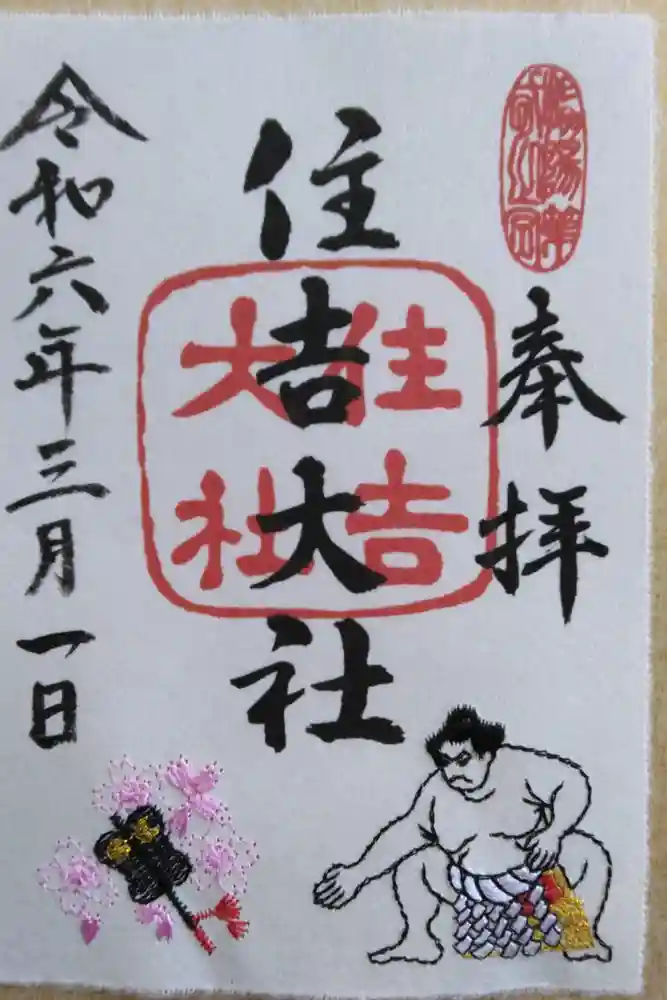 奉拝
住吉大社
住吉
大社
令和六年三月一日